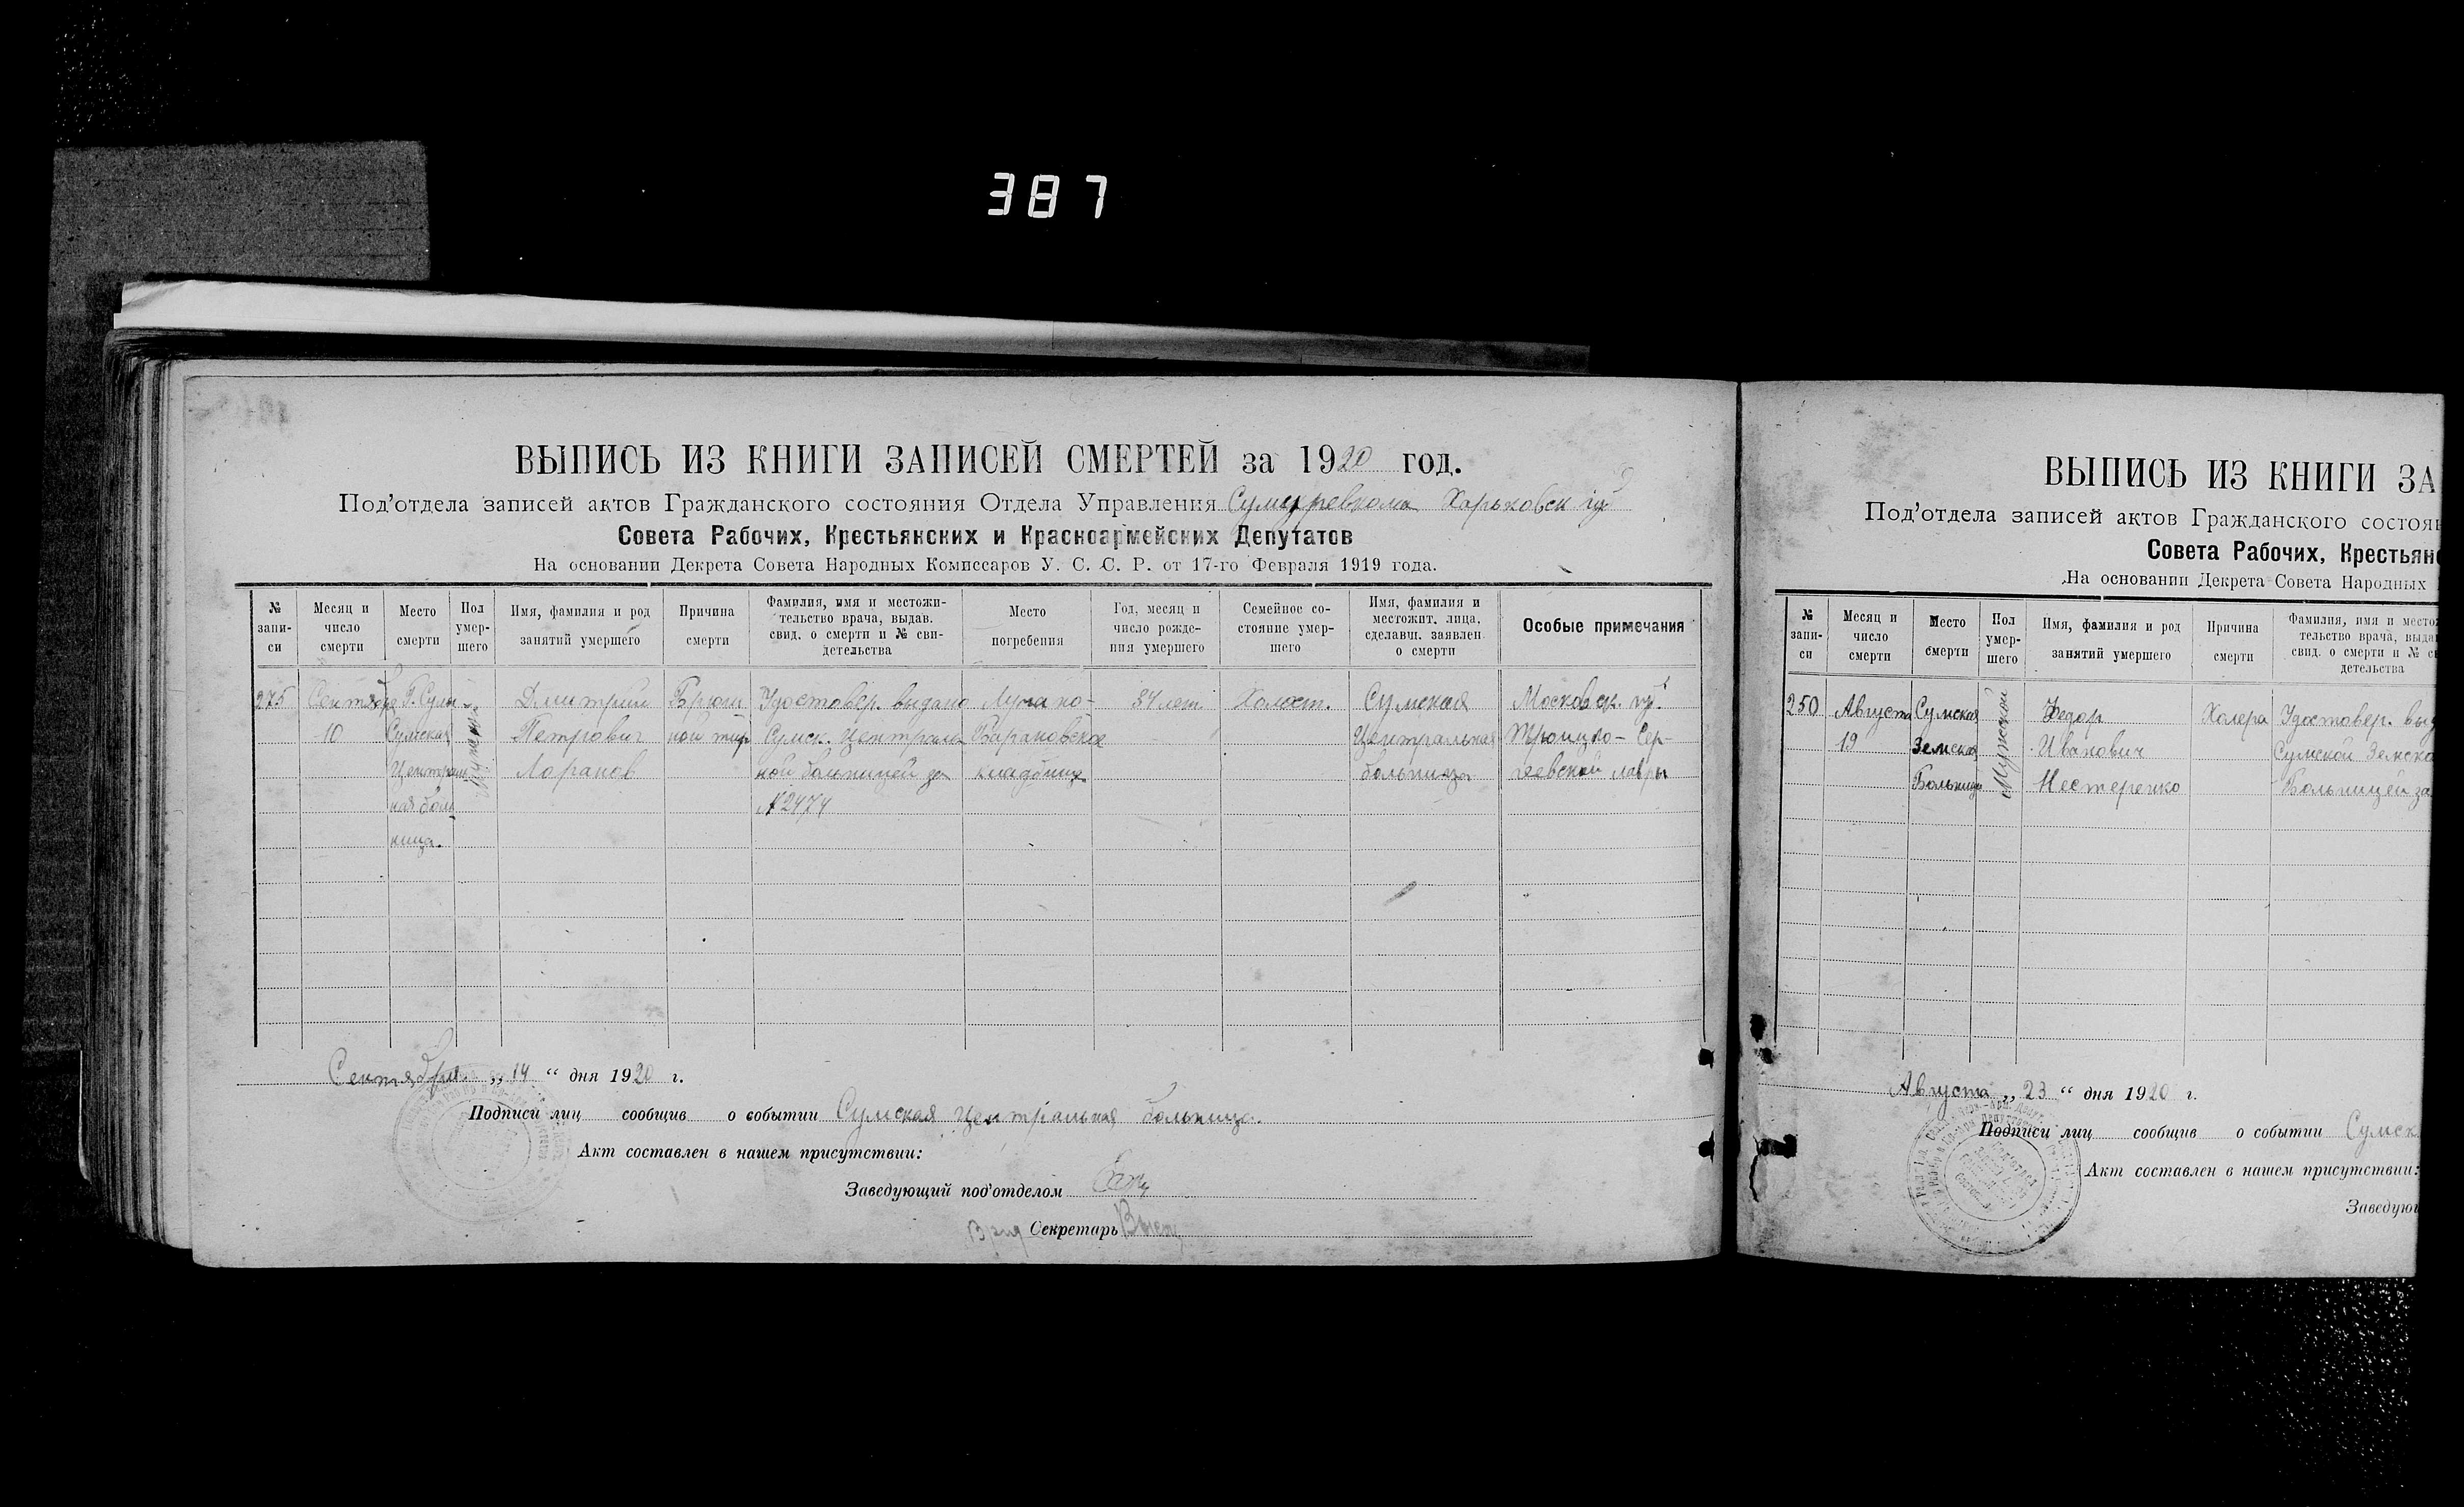 387
ВЫПИСЬ ИЗ КНИГИ ЗАПИСЕЙ СМЕРТЕЙ за 1920 год.
Под'отдела записей актов Гражданского состояния Отдела Управления Сумуревкома Харьковск губ
Совета Рабочих, Крестьянских и Красноармейских Депутатов
На основании Декрета Совета Народных Комиссаров У. С. С. Р. от 17-го Февраля 1919 года.
№ запи-си
Месяц и число смерти
Место смерти
Пол умер-шего
Имя, фамилия и род занятий умершего
Причина смерти
Фамилия, имя и местожи-тельство врача, выдав. свид. о смерти и № сви-детельства
Место погребения
Год, месяц и число рожде-ния умершего
Семейное со-стояние умер-шего
Имя, фамилия и местожит. лица, сделавш. заявлен. о смерти
Особые примечания
275
Сентября
10
Г. Сумы
Сумская
Централь
ная боль
ница.
Мужской
Дмитрий
Петрович
Брюш
ной тиф
Удостовер. выдано
Сумск. Централь
ной больницей за
№ 2474
Барановское
кладбище
34 лет
Холост.
Сумская
Центральная
больница
Московск. губ.
Троицко-Сер-
геевской лавры
Сентября „ 14 “ дня 1920 г.
Подписи лиц сообщив о событии Сумская Центральная больница.
Акт составлен в нашем присутствии:
Заведующий под'отделом
Врид Секретарь
ВЫПИСЬ ИЗ КНИГИ ЗА
Под'отдела записей актов Гражданского состоян
Совета Рабочих, Крестьянс
На основании Декрета Совета Народных
№ запи-си
Месяц и число смерти
Место смерти
Пол умер-шего
Имя, фамилия и род занятий умершего
Причина смерти
Фамилия, имя и место
тельство врача, выда
свид. о смерти и № с
детельства
250
Августа
19
Сумская
Земская
Больница
Мужской
Федор
Иванович
Нестеренко
Холера
Удостовер. выд
Сумской Земско
Больницей за
Августа „ 23 “ дня 1920 г.
Подписи лиц сообщив о событии Сумск
Акт составлен в нашем присутствии:
Заведую